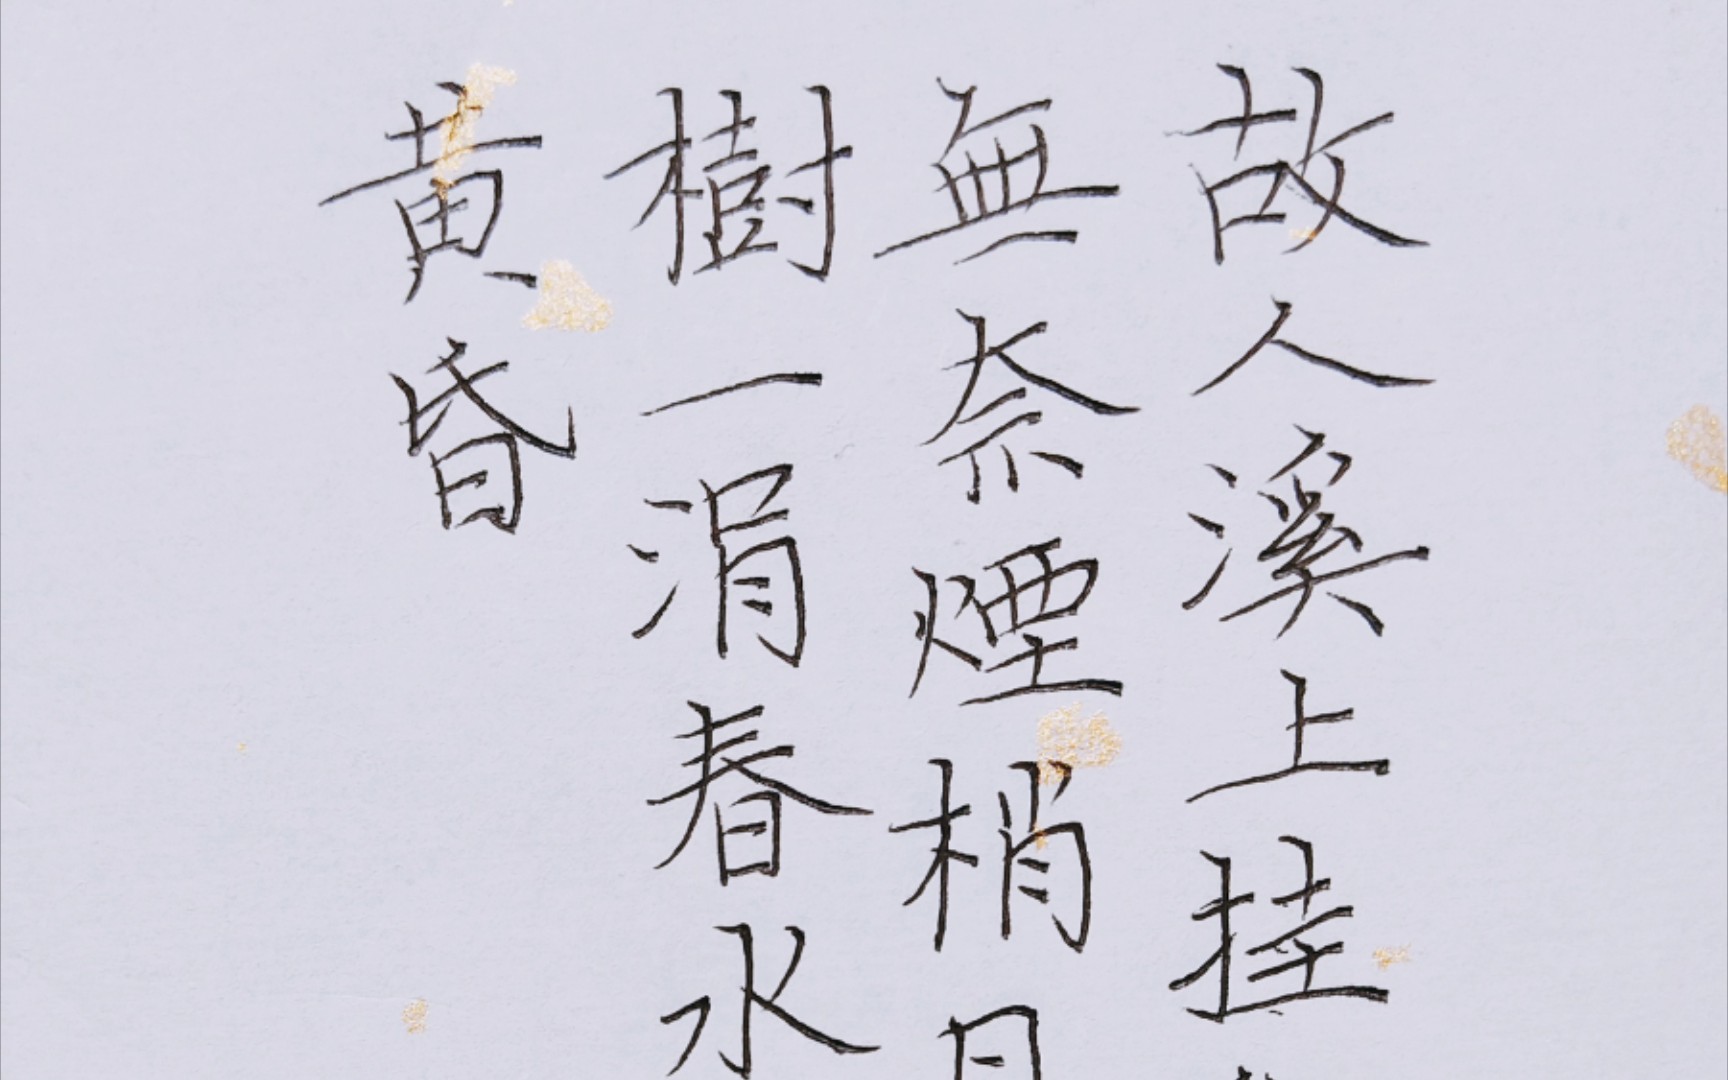 故人溪上挂
無奈煙梢月
樹一涓春水
黄昏